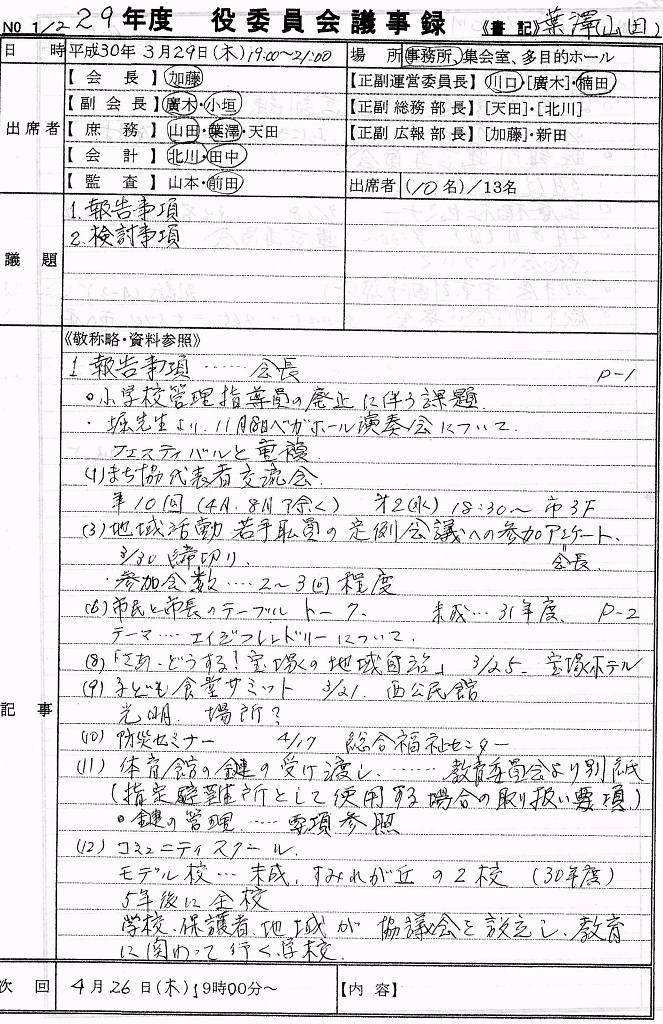 NO 1/2 29年度 役委員会議事録 《書記》葉澤(山田)
日時 平成30年3月29日(木)19:00~21:00 場所 事務所、集会室、多目的ホール
出席者
【会長】 加藤 【正副運営委員長】 川口・[廣木]・楠田
【副会長】 廣木・小垣 【正副総務部長】 [天田]・[北川]
【庶務】 山田・葉澤・天田 【正副広報部長】 [加藤]・新田
【会計】 北川・田中
【監査】 山本・前田 出席者 (10名)/13名
議題
1.報告事項
2.検討事項
記事
《敬称略・資料参照》
1 報告事項 …… 会長 P-1
○小学校管理指導員の廃止に伴う課題
・堀先生より、11月8日ベガホール演奏会について
フェスティバルと重複
(1)まち協代表者交流会
年10回(4月、8月除く) 第2(水) 18:30~ 市3F
(3)地域活動 若手職員の定例会議への参加アンケート、
3/30 締切り 会長
・参加会数 …. 2~3回程度
(6)市民と市長のテーブルトーク、 末成… 31年度、 P-2
テーマ …. エイジフレンドリーについて、
(8)「さあ・どうする!宝塚の地域自治」 3/25、宝塚ホテル
(9)子ども食堂サミット 3/21、西公民館
光明、場所?
(10)防災セミナー 4/17 総合福祉センター
(11)体育館の鍵の受け渡し、…… 教育委員会より別紙
(指定避難所として使用する場合の取り扱い要項)
○鍵の管理 …… 要項参照
(12)コミュニティスクール、
モデル校 … 末成、すみれが丘の2校 (30年度)
5年後に全校
学校、保護者、地域が 協議会を設立し、教育
に関わって行く学校、
次回 4月26日(木)19時00分~ 【内容】